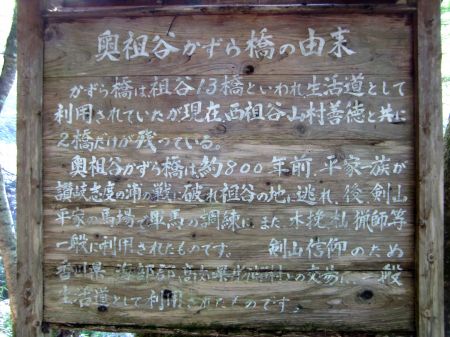 奥祖谷かずら橋の由来
かずら橋は祖谷13橋といわれ生活道として
利用されていたが現在西祖谷山村善徳と共に
2橋だけが残っている。
奥祖谷かずら橋は約800年前、平家一族が
讃岐志度の浦の戦に破れ祖谷の地に逃れ、後、剣山
平家の馬場で軍馬の調練に、また、木挽、杣、猟師等
一般に利用されたものです。 剣山信仰のため
香川県、海部郡、高知県 との交易に、一般
生活道として利用されたものです。